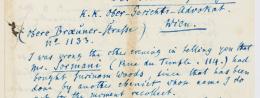 K. K. Ober-Gerichts-Advokat.
(Obere Bräuner-Straße)
No. 1133.
Wien.
I was wrong the other evening in telling you that
Mr. Sormani (Rue du Temple, 114.) had
bought Surinam woods, since that has been
done by another ebenist whose name I do
not for the moment recollect.